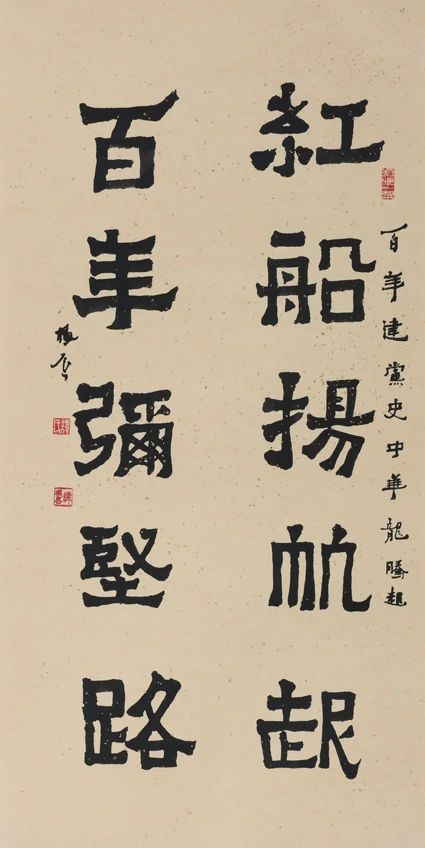 百年建黨史中華龍騰起
紅船揚帆起
百年彌堅路